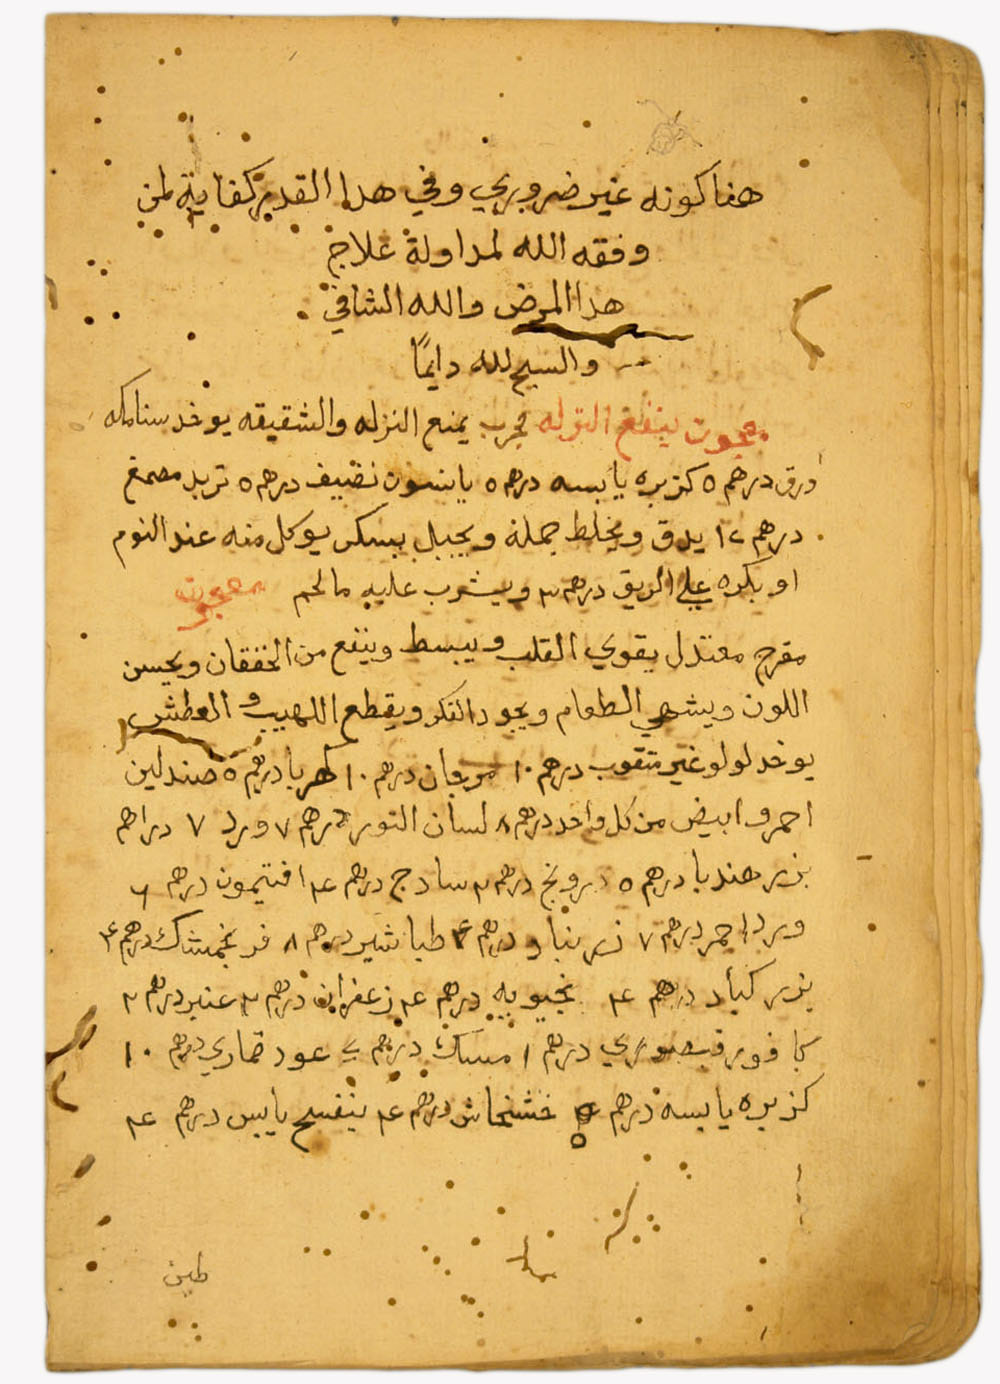 هنا كونه غير ضروري وفي هدا القدر كفاية لمن
وفقه الله لمداولة علاج
هدا المرض والله الشافي
والسبح لله دايمًا
معجون ينفع النزله مجرب يمنع النزله والشقيقه يوخد سنامكه
ورق درهم ٥ كزبره يابسه درهم ٥ يانسون نضيف درهم ٥ تربد مصمغ
درهم ١٢ يدق ويخلط جملة ويجبل بسكر يوكل منه عند النوم
او بكره علي الريق درهم ٣ ويشرب عليه مالحم معجون
مفرح معتدل يقوي القلب ويبسط وينفع من الخفقان ويحسن
اللون ويشهي الطعام ويجود الفكر ويقطع اللهيب والعطش
يوخد لولو غير متقوب درهم ١٠ مرجان درهم ١٠ كهربا درهم ٥ صندلين
احمر وابيض من كل واحد درهم ٨ لسان التور درهم ٧ ورد ٧ دراهم
بزر هندبا درهم ٥ درونج درهم ٣ سادج درهم ٤ افتيمون درهم ٦
ورد احمر درهم ٧ زرنباد درهم ٤ طباشير درهم ٨ فرنجمشك درهم ٤
بزر كباد درهم ٤ بجبويه درهم ٤ زعفران درهم ٣ عنبر درهم ٣
كافور قيصوري درهم ١ مسك درهم ٢ عود قماري درهم ١٠
كزبره يابسه درهم ٥ خشخاش درهم ٤ بنفسج يابس درهم ٤
طين